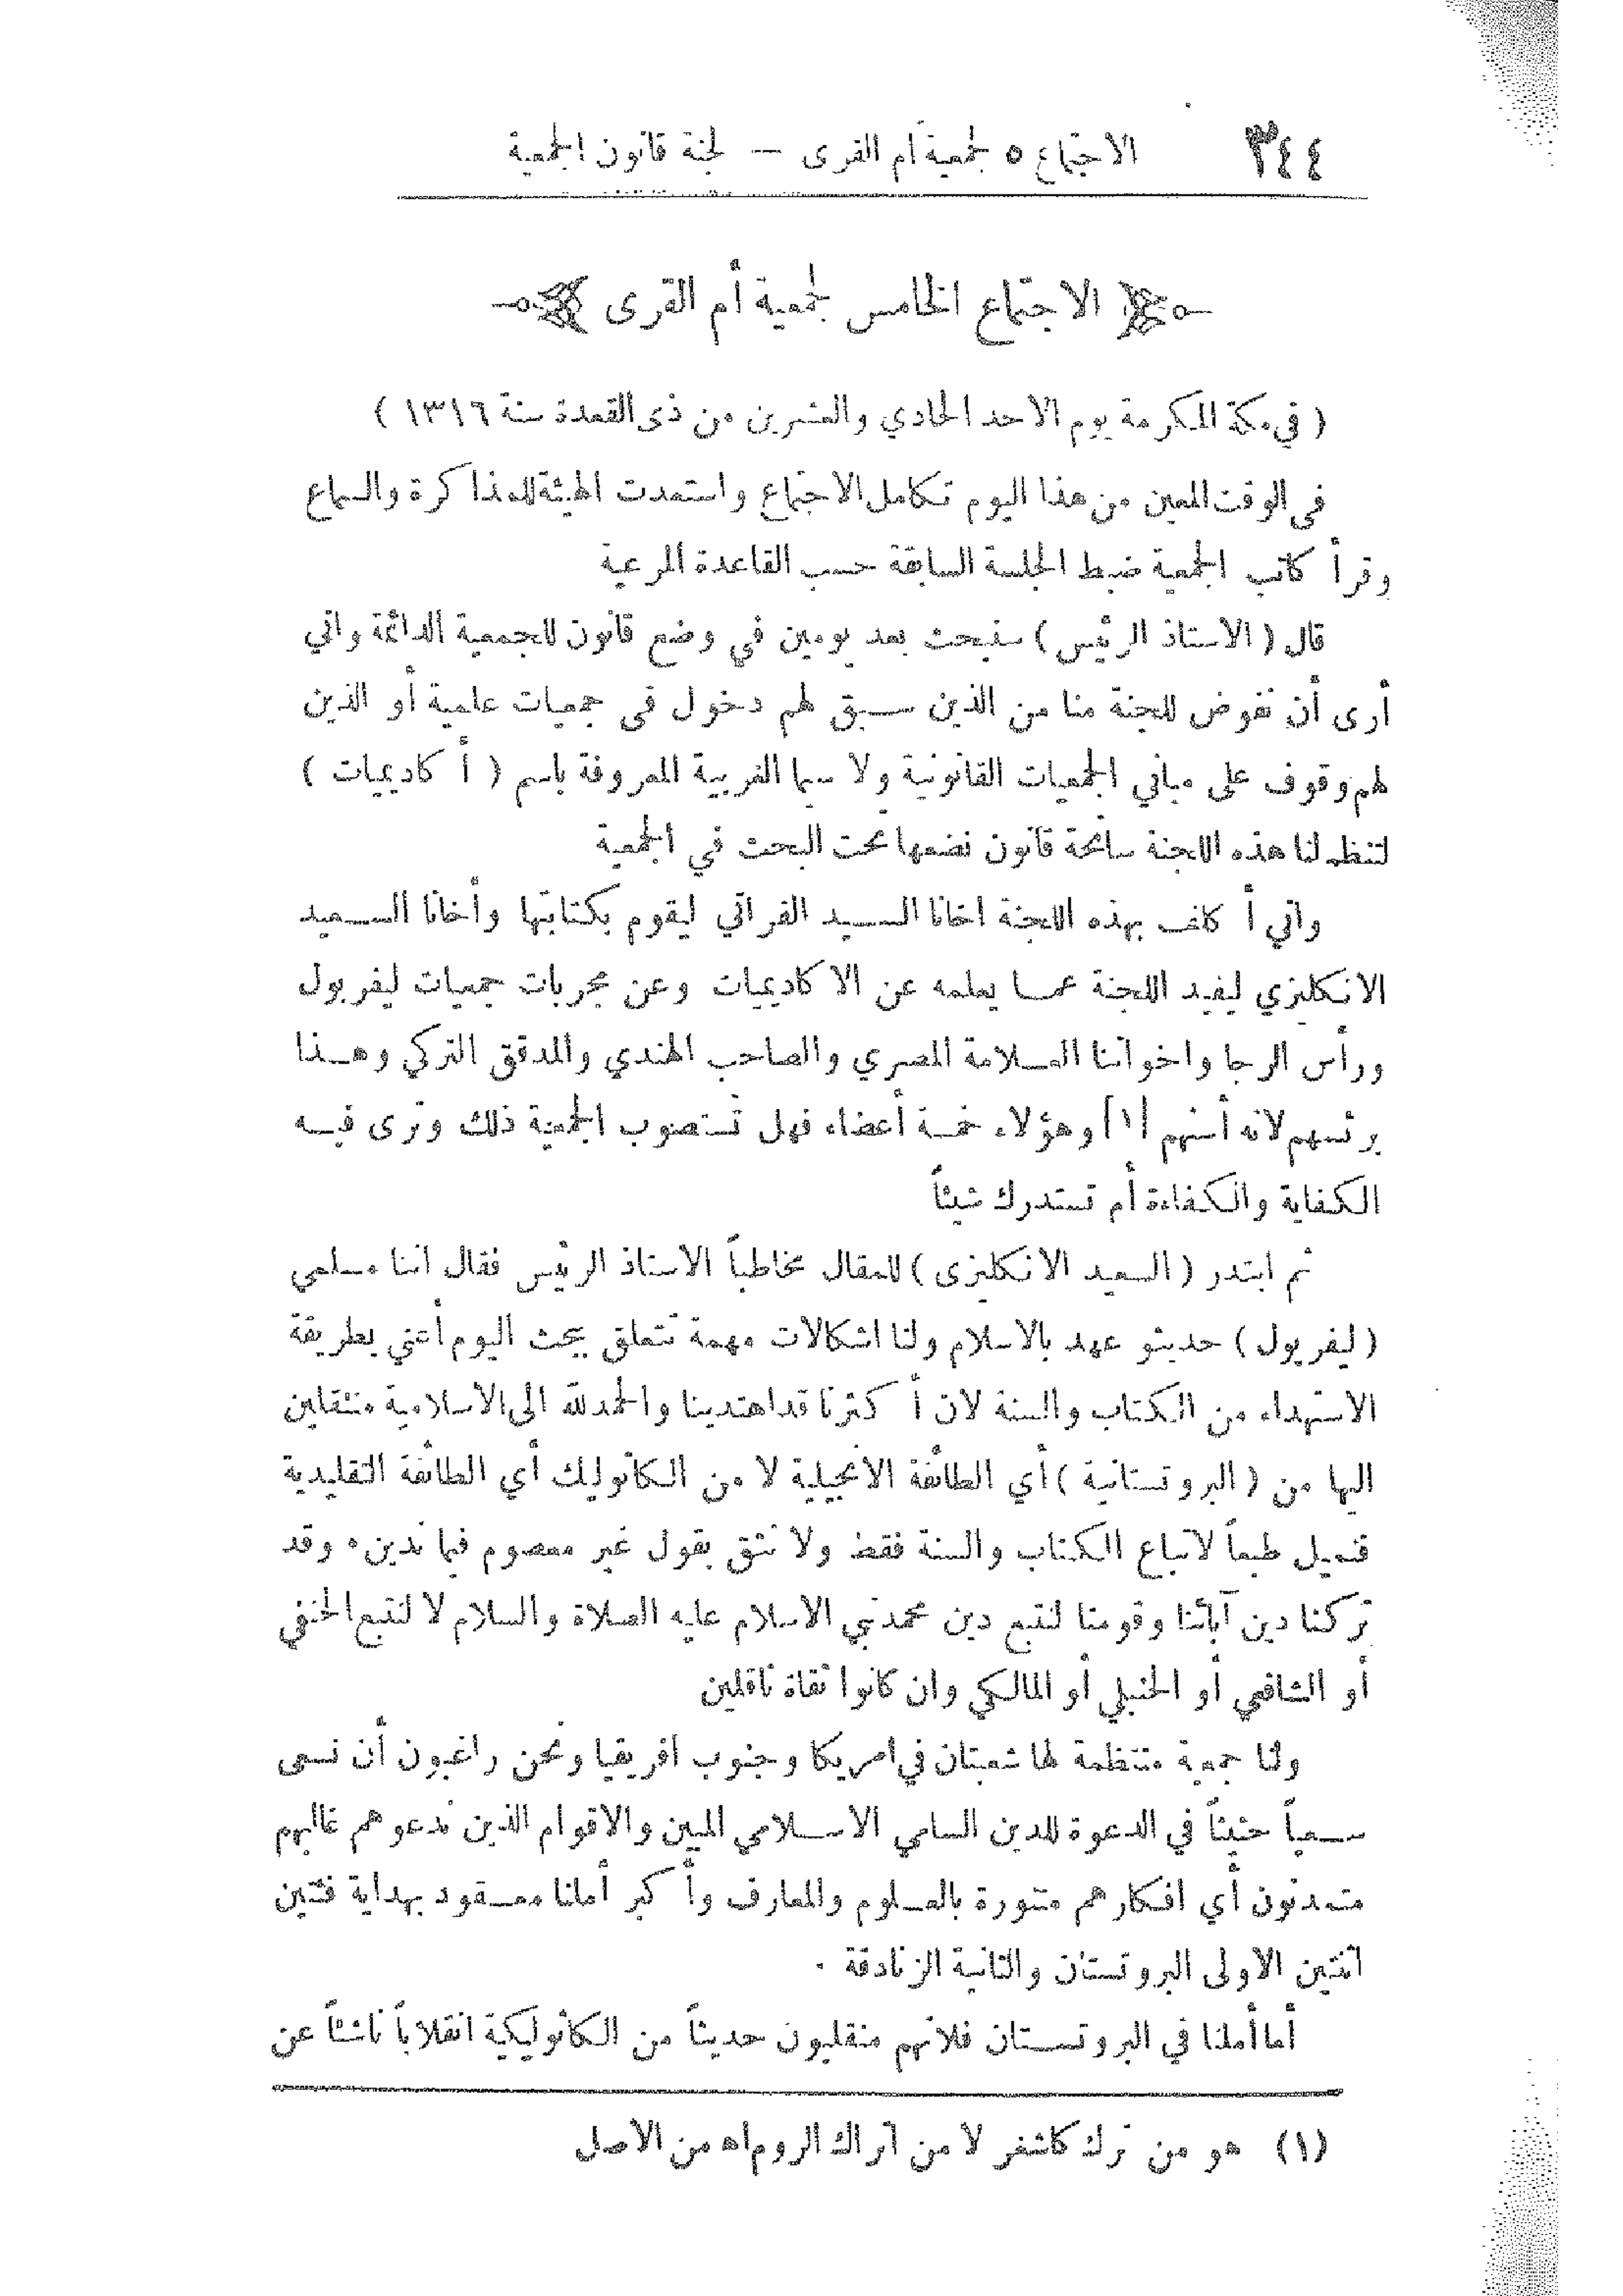 ٣٤٤ الاجتماع ٥ لجمعية أم القرى — لجنة قانون الجمعية
الاجتماع الخامس لجمعية أم القرى
( في مكة المكرمة يوم الاحد الحادي والعشرين من ذى القعدة سنة ١٣١٦ )
في الوقت المعين من هذا اليوم تكامل الاجتماع واستعدت الهيئة للمذاكرة والسماع
وقرأ كاتب الجمعية ضبط الجلسة السابقة حسب القاعدة المرعية
قال ( الاستاذ الرئيس ) سنبحث بعد يومين في وضع قانون للجمعية الدائمة واني
أرى أن نفوض للجنة منا من الذين سبق لهم دخول في جمعيات علمية أو الذين
لهم وقوف على مباني الجمعيات القانونية ولا سيما الغربية المعروفة باسم ( أ كاديميات )
لتنظم لنا هذه اللجنة سانحة قانون نضعها تحت البحث في الجمعية
واني أ كلف بهذه اللجنة اخانا السيد الفراتي ليقوم بكتابتها وأخانا السعيد
الانكليزي ليفيد اللجنة عما يعلمه عن الاكاديميات وعن مجربات جمعيات ليفربول
ورأس الرجا واخواننا العلامة المصري والصاحب الهندي والمدقق التركي وهذا
يرئسهم لانه أسنهم [١] وهؤلاء خمسة أعضاء فهل تستصوب الجمعية ذلك وترى فيه
الكفاية والكفاءة أم تستدرك شيئاً
ثم ابتدر ( السعيد الانكليزى ) للمقال مخاطباً الاستاذ الرئيس فقال اننا مسلمي
( ليفربول ) حديثو عهد بالاسلام ولنا اشكالات مهمة تتعلق ببحث اليوم أعني بطريقة
الاستهداء من الكتاب والسنة لان أ كثرنا قد اهتدينا والحمد لله الى الاسلامية منتقلين
اليها من ( البروتستانية ) أي الطائفة الانجيلية لا من الكاثوليك أي الطائفة التقليدية
فنميل طبعاً لاتباع الكتاب والسنة فقط ولا نثق بقول غير معصوم فيما ندين . وقد
تركنا دين آبائنا وقومنا لنتبع دين محمد نبي الاسلام عليه الصلاة والسلام لا لنتبع الحنفي
أو الشافعي أو الحنبلي أو المالكي وان كانوا ثقاة ناقلين
ولنا جمعية منتظمة لها شعبتان في امريكا وجنوب افريقيا ونحن راغبون أن نسعى
سعياً حثيثاً في الدعوة للدين السامي الاسلامي المبين والاقوام الذين ندعوهم غالبهم
متمدنون أي افكارهم متنورة بالعلوم والمعارف وأ كبر أملنا معقود بهداية فئتين
اثنتين الاولى البروتستان والثانية الزنادقة .
أما أملنا في البروتستان فلانهم منقلبون حديثاً من الكاثوليكية انقلاباً ناشئاً عن
(١) هو من ترك كاشغر لا من أتراك الروم اه من الاصل